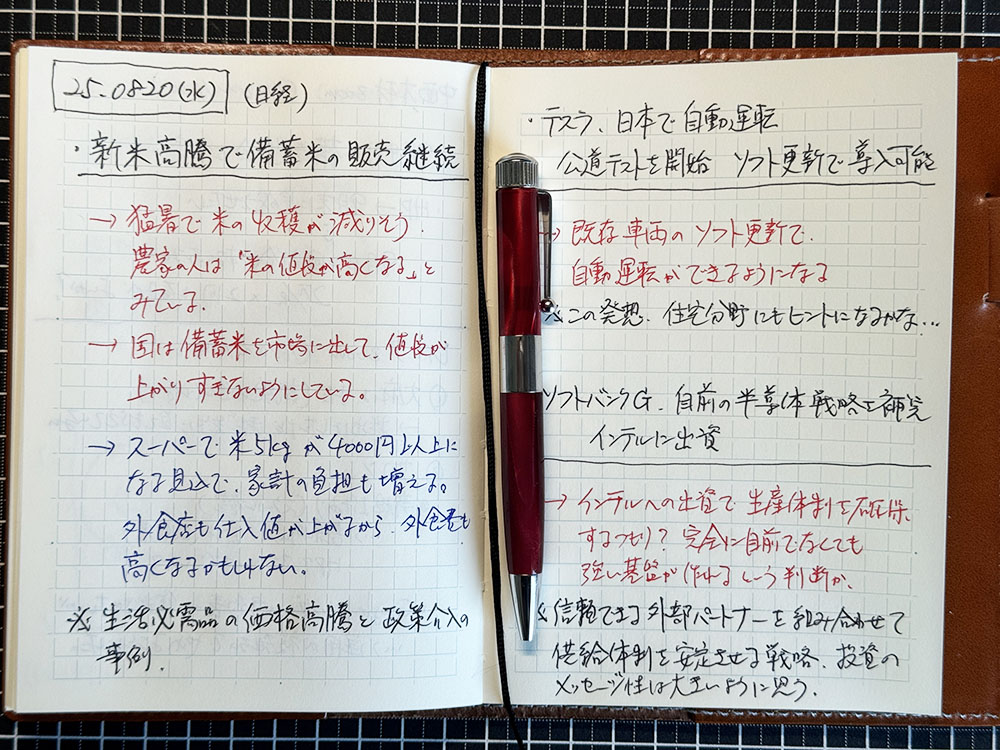 25.0820(水) (日経)
・新米高騰で備蓄米の販売継続
→ 猛暑で米の収穫が減りそう.
農家の人は「米の値段が高くなる」と
みている.
→ 国は備蓄米を市場に出して、値段が
上がりすぎないようにしている。
→ スーパーで米5kgが4000円以上に
なる見込で、家計の負担も増える。
外食店も仕入値が上がるから、外食費も
高くなるかもしれない。
※ 生活必需品の価格高騰と政策介入の
事例.
・テスラ、日本で自動運転
公道テストを開始 ソフト更新で導入可能
→ 既存車両のソフト更新で.
自動運転ができるようになる
※この発想、住宅分野にもヒントになるかな…
ソフトバンクG、自前の半導体戦略を補完
インテルに出資
→ インテルへの出資で生産体制を確保
するつもり? 完全に自前でなくても
強い基盤が作れるという判断か.
※信頼できる外部パートナーを組み合わせて
供給体制を安定させる戦略、投資の
メッセージ性は大きいように思う.